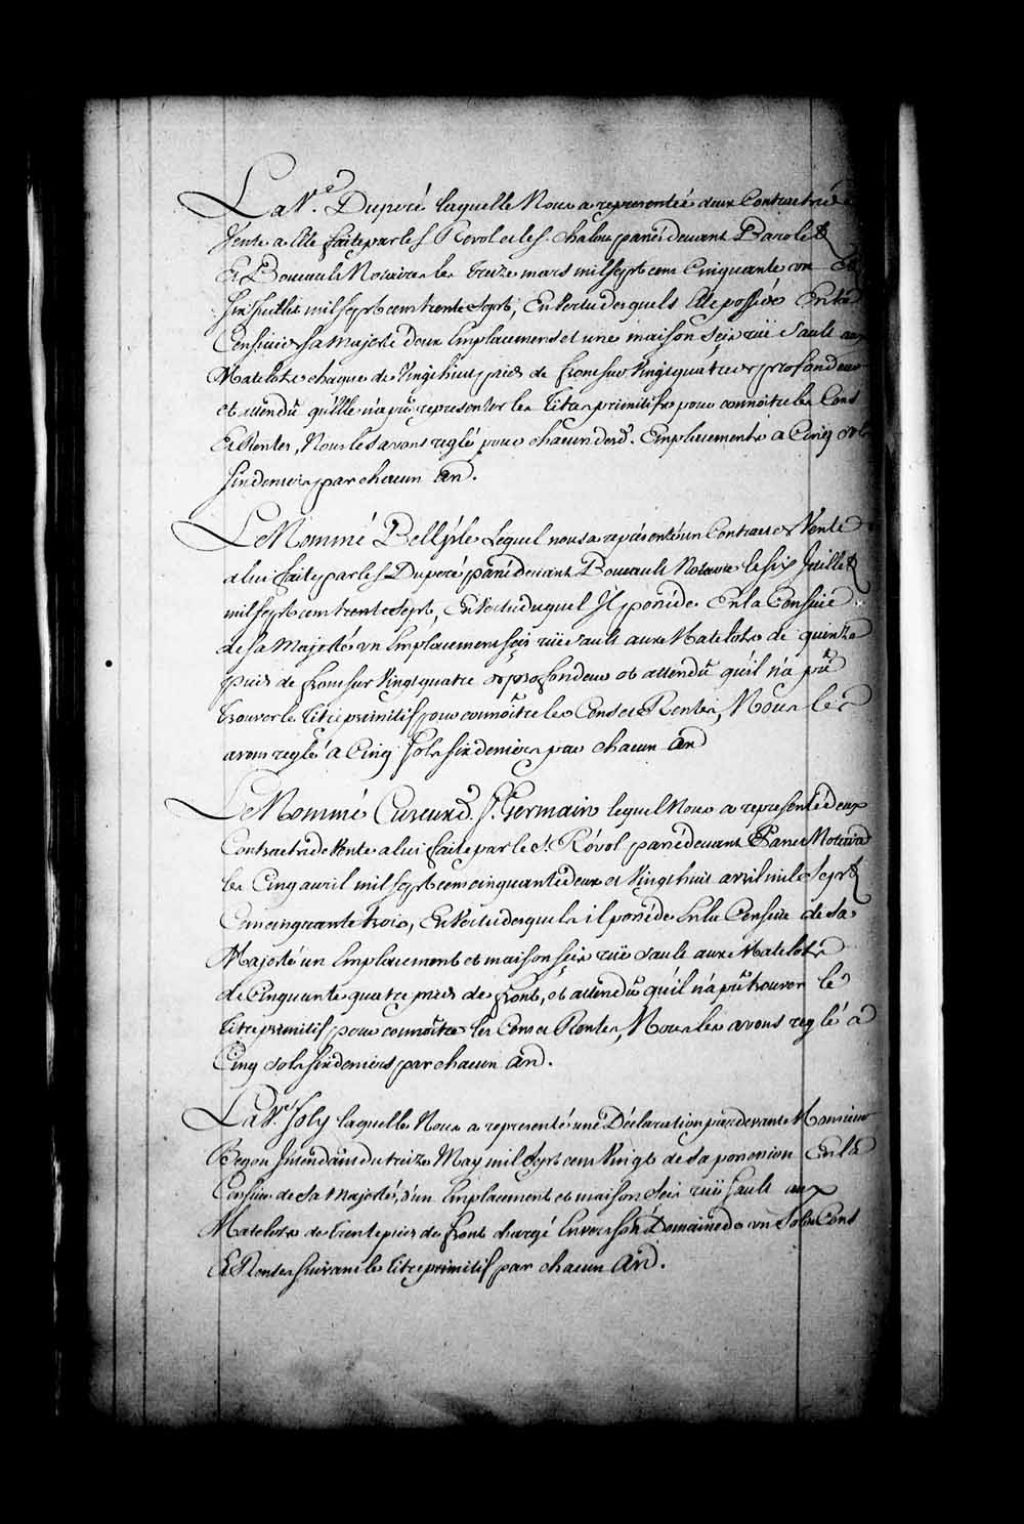 La V.e Duperé laquelle Nous a representée deux Contracts de
Vente a elle faite par les S. Revol et le S. Chalou passé devant Barolet
Et Boucault Notaires le treize mars mil sept cent Cinquante un Et
six Juillet mil sept cent trente sept, En Vertu desquels Elle possède En la
Censive de sa Majesté deux Emplacements et une maison scis rüe Sault aux
Matelots chaque de Vingt huit pieds de front sur Vingt quatre de profondeur
et attendû qu'Elle n'a pû representer les titres primitifs pour connoitre les Cens
Et Rentes, Nous les avons reglé pour chacun desd. Emplacements a Cinq sols
six deniers par chacun An.
Le Nommé Bellisle Lequel nous a representé un Contract de Vente
a lui faite par le S. Duperé passé devant Boucault Notaire le six Juillet
mil sept cent trente sept, En Vertu duquel Il possède En la Censive
de sa Majesté un Emplacement scis rüe Sault aux Matelots de quinze
pieds de front sur Vingt quatre de profondeur et attendû qu'il n'a pû
trouver le titre primitif pour connoitre les Cens et Rentes, Nous les
avons reglé a Cinq sols six deniers par chacun An
Le Nommé Cureux d. S.t Germain lequel Nous a representé deux
Contracts de Vente a lui faite par le S. Révol passé devant Panet Notaire
les Cinq avril mil sept cent cinquante deux et Vingt huit avril mil Sept
Cent cinquante trois, En Vertu desquels il possède En la Censive de Sa
Majesté un Emplacement et maison scis rüe Sault aux Matelots
de Cinquante quatre pieds de front, et attendû qu'il n'a pû trouver le
titre primitif pour connoitre les Cens et Rentes, Nous les avons reglé a
Cinq sols six deniers par chacun An.
La V.e Joly laquelle Nous a representé une Déclaration par devant Monsieur
Begon Intendant du treize May mil sept cent Vingt de sa possession En la
Censive de Sa Majesté, d'un Emplacement et maison scis rüe Sault aux
Matelots de trente pieds de front chargé Envers son Domaine de un Sols Cens
Et Rentes suivant le titre primitif par chacun An.